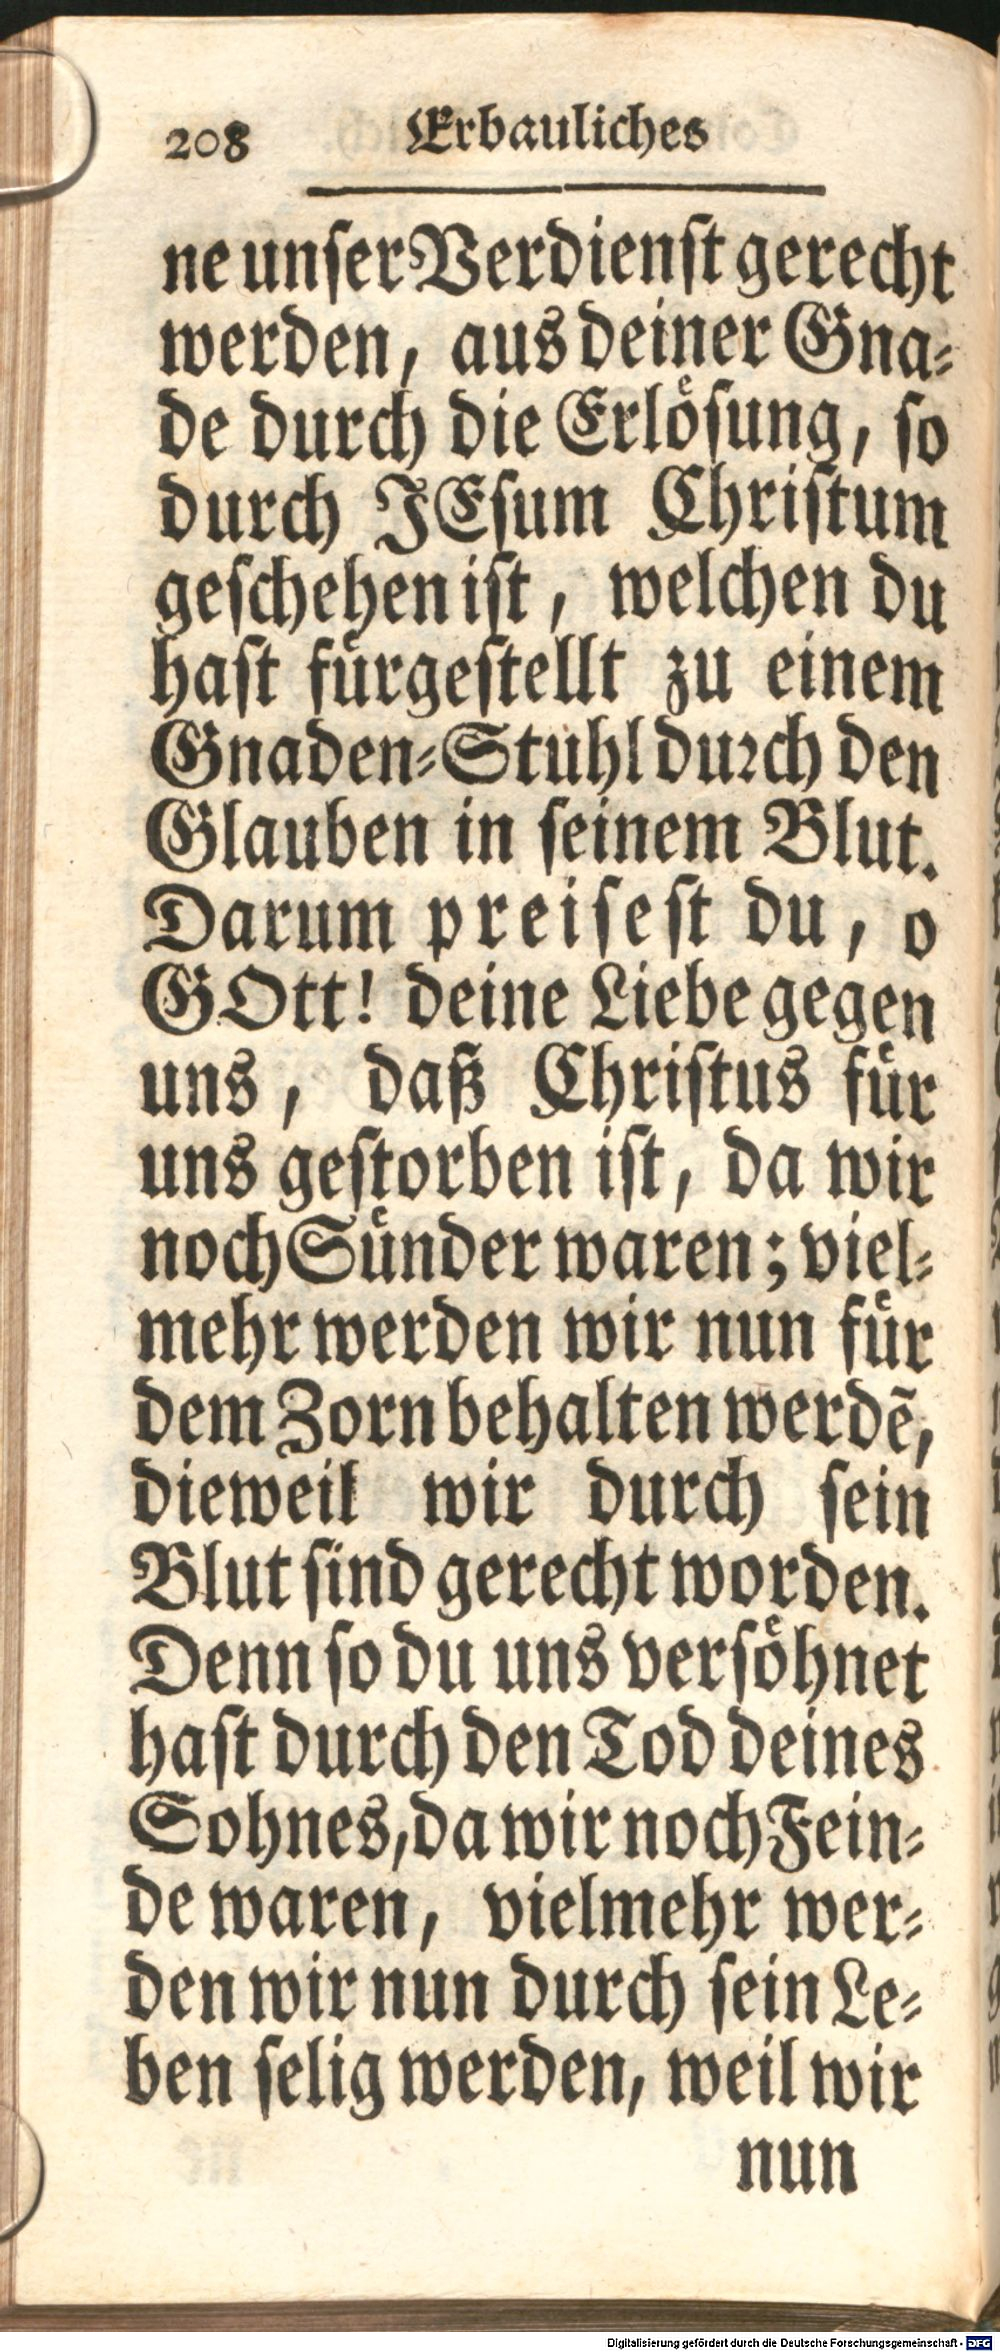 208 Erbauliches
ne unſer Verdienſt gerecht
werden, aus deiner Gna⸗
de durch die Erlöſung, ſo
durch JEſum Chriſtum
geſchehen iſt, welchen du
haſt fürgeſtellt zu einem
Gnaden⸗Stuhl durch den
Glauben in ſeinem Blut.
Darum preiſeſt du, o
GOtt! deine Liebe gegen
uns, daß Chriſtus für
uns geſtorben iſt, da wir
noch Sünder waren; viel⸗
mehr werden wir nun für
dem Zorn behalten werdẽ,
dieweil wir durch ſein
Blut ſind gerecht worden.
Denn ſo du uns verſöhnet
haſt durch den Tod deines
Sohnes, da wir noch Fein⸗
de waren, vielmehr wer⸗
den wir nun durch ſein Le⸗
ben ſelig werden, weil wir
nun
Digitalisierung gefördert durch die Deutsche Forschungsgemeinschaft - DFG